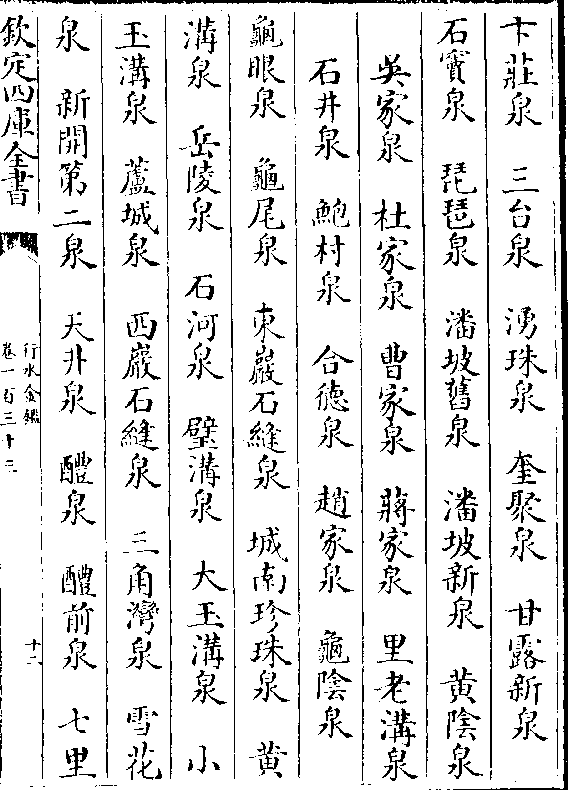 卞莊泉　三台泉　湧珠泉　奎聚泉　甘露新泉
石竇泉　琵琶泉　潘坡舊泉　潘坡新泉　黄陰泉
吳家泉　杜家泉　曹家泉　蔣家泉　里老溝泉
石井泉　鮑村泉　合德泉　趙家泉　龜陰泉
龜眼泉　龜尾泉　東巖石縫泉　城南珍珠泉　黄
溝泉　岳陵泉　石河泉　璧溝泉　大玉溝泉　小
玉溝泉　蘆城泉　西巖石縫泉　三角灣泉　雪花
泉　新開第二泉　天井泉　醴泉　醴前泉　七里
欽定四庫全書
行水金鑑
卷一百三十三
十二